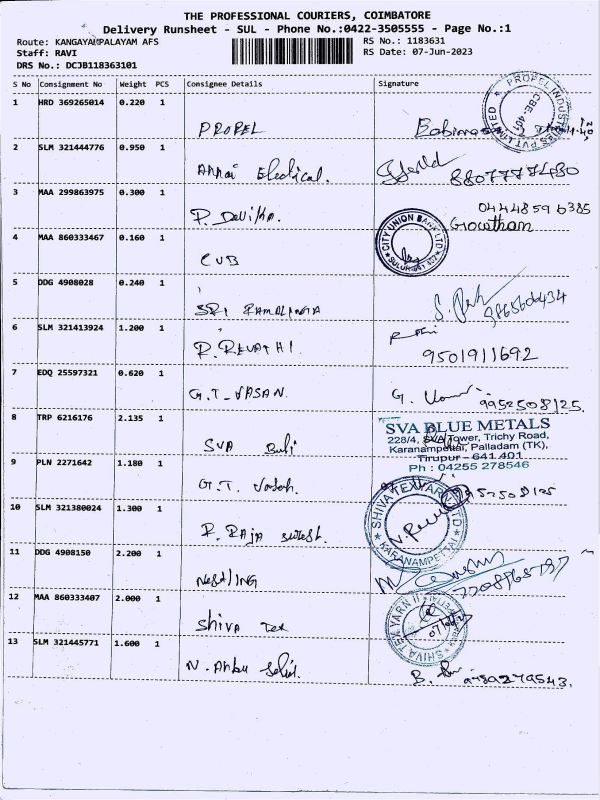 THE PROFESSIONAL COURIERS, COIMBATORE
Delivery Runsheet - SUL - Phone No.:0422-3505555 - Page No.:1
Route: KANGAYAMPALAYAM AFS
RS No.: 1183631
Staff: RAVI
RS Date: 07-Jun-2023
DRS No.: DCJB118363101
S No Consignment No Weight PCS Consignee Details Signature
1 HRD 369265014 0.220 1
PROPEL
PROPEL INDUSTRIES PVT LIMITED
2 SLM 321444776 0.950 1
Electrical. 8807777480
3 MAA 299863975 0.300 1
P. Devika. 04448596385
Gowtham
CITY UNION BANK LTD
4 MAA 860333467 0.160 1
CUB
5 DDG 4908028 0.240 1
SRI RAMALINGA
6 SLM 321413924 1.200 1
R. REVATHI 9501911692
7 EDQ 25597321 0.620 1
G.T. VASAN. G. 9952508125.
8 TRP 6216176 2.135 1
SVA
SVA BLUE METALS
228/4, SVA Tower, Trichy Road,
Karanampettai, Palladam (TK),
Tirupur - 641 401
Ph : 04255 278546
9 PLN 2271642 1.180 1
G.T. Vasan.
10 SLM 321380024 1.300 1
R. Raja suresh.
SHIVA TEXYARN LTD
KARANAMPETTAI
11 DDG 4908150 2.200 1
Nestling
12 MAA 860333407 2.000 1
Shiva Tex
SHIVA TEX YARN
13 SLM 321445771 1.600 1
N. Anbu 9789279543.